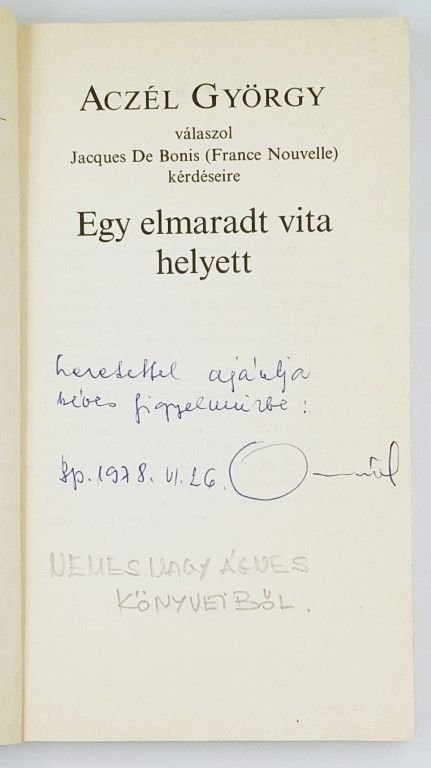 ACZÉL GYÖRGY
válaszol
Jacques De Bonis (France Nouvelle)
kérdéseire
Egy elmaradt vita
helyett
szeretettel ajánlja
kéves figyelmürbe:
Bp. 1978. VI. 26.
NEMES NAGY ÁGNES
KÖNYVEIBŐL.